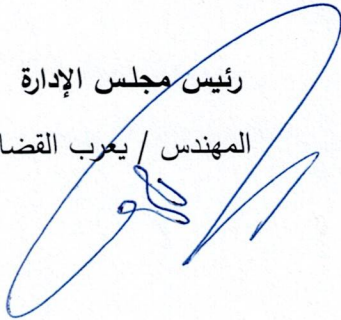 رئيس مجلس الإدارة
المهندس / يعرب القضا